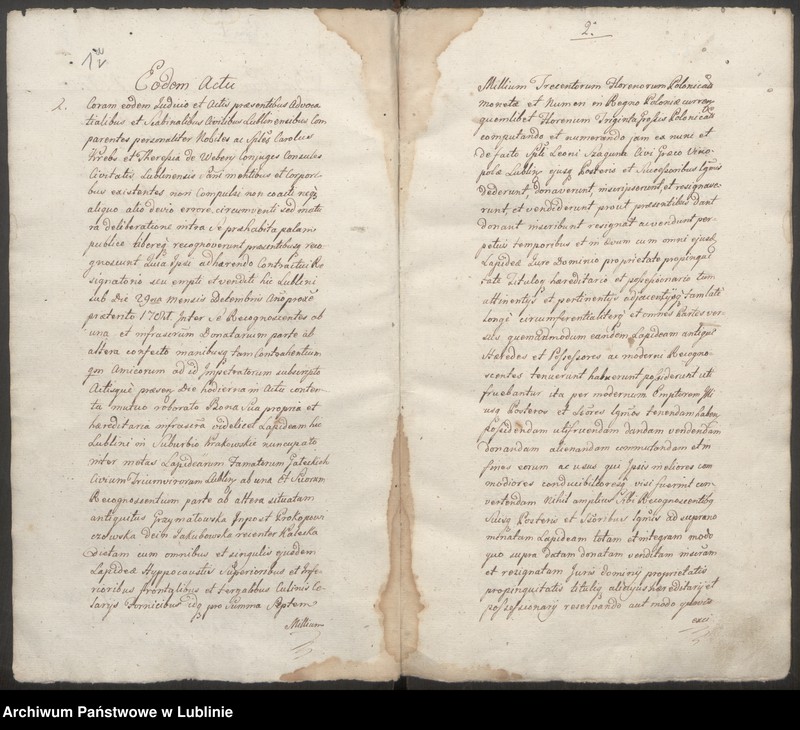 1
2.
Eodem Actu
2. Coram eodem Judicio et Actis præsentibus Advoca
tialibus et Scabinalibus Civilibus Lublinensibus Com
parentes personaliter Nobiles ac Sptles Carolus
Krebs et Theresia de Webery Conjuges Consules
Civitatis Lublinensis Sani mentibus et Corpori
bus existentes non Compulsi non coacti neq3
aliquo alio devio errore circumventi sed matu
ra deliberatione intra se præhabita palam
publice libereq3 recognoverunt præsentibusq3 reco
gnoscunt Quia Ipsi adhærendo Contractui Re
signatorio seu empti et venditi hic Lublini
sub Die 29no mensis Decembris Anno proxe
præterito Inter Se Recognoscentes ab
una et infrascrum Donatarium parte ab
altera confecto manibusq3 tam Contrahentium
qm Amicorum ad id Impetratorum subscripto
Actisque præsen Die hodierna in Actu conten
tu mutuo roborato Bona Sua propria et
hæreditaria infrascra videlicet Lapideam hic
Lublini in Suburbio Krakowskie nuncupato
inter metas Lapidearum Famatorum Gateckich
Civium Triumvirorum Lublin ab una et Suoram
Recognoscentium parte ab altera situatam
antiquitus Grzymałowska Inpost Prokopowi
czowska dein Jakubowska recenter Kaleska
Dictam cum omnibus et singulis ejusdem
Lapideæ Hyppocaustis Superioribus et Infe-
rioribus frontalibus et tergalibus Culinis Ce-
larys Fornicibus idq3 pro Summa Septem
Millium
Millium Trecentorum Florenorum Polonicali
moneta et Numeri in Regno Poloniæ curren
quemlibet Florenum Triginta Grossis Polonicali
computando et numerando jam ex nunc et
de facto Sptli Leoni Szagunie Civi Græco Vino-
polæ Lublin ejusq3 Posteris et Successoribus Lgmis
Dederunt, donaverunt, inscripserunt, et resignave-
runt, et vendiderunt prout præsentibus dant
donant inscribunt resignat ac vendunt per-
petuis temporibus et in ævum cum omni ejusd
Lapideæ Jure Dominio proprietate propinqui
tate Titulog hæreditario et possessionario tum
attinentys et pertinentys adjacentysq3 tam late
longe circumferentialiterq3 et omnes partes ver-
sus quemadmodum eandem Lapideam antiqui
Hæredes et Possessores ac moderni Recogno-
scentes tenuerunt habuerunt possiderunt ut
fruebantur ita per modernum Emptorem Illi
usq3 Posteros et Scores Lgmos tenendam haben
possidendam utifruendam dandam vendendam
donandam alienandam commutandam et in
fines eorum ac usus qui Ipsis meliores com
modiores conducibilioresq3 visi fuerint con
vertendam Nihil amplius Sibi Recognoscentibq3
Suisq3 Posteris et Scoribus Lgmis ad suprano
minatam Lapideam totam et integram modo
quo supra Datam donatam venditam inscram
et resignatam Juris dominy proprietatis
propinquitatis tituliq3 alicujus hæreditary et
possessionary reservando aut modo quovis
exci
Archiwum Państwowe w Lublinie